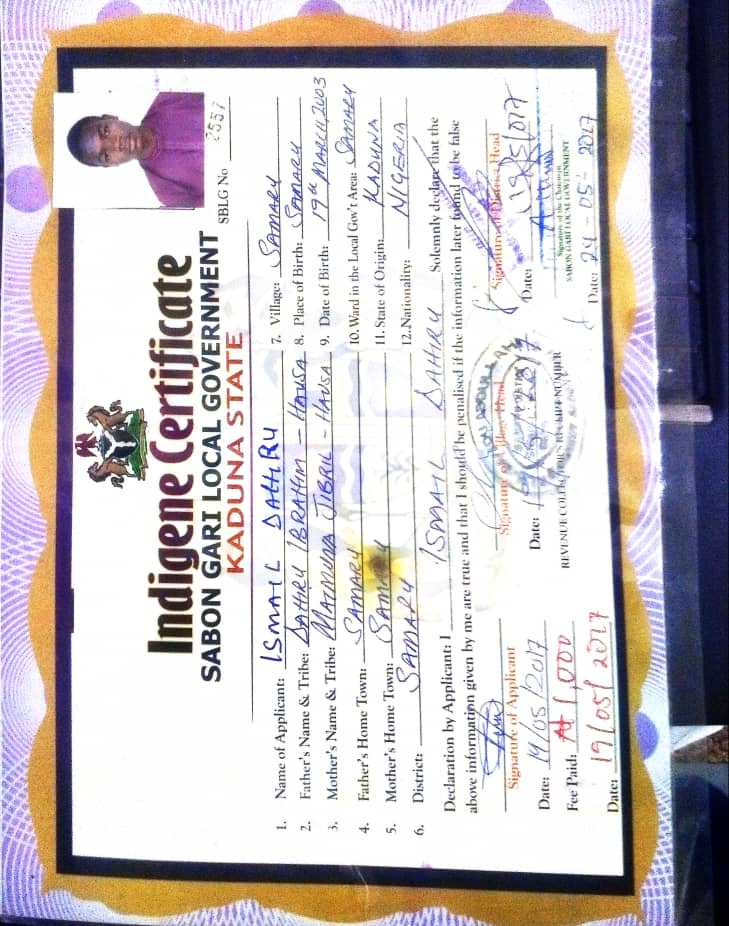 Indigene Certificate
SABON GARI LOCAL GOVERNMENT
KADUNA STATE
SBLG No 2557
1. Name of Applicant: ISMAIL DAHIRU
2. Father's Name & Tribe: DAHIRU IBRAHIM - HAUSA
3. Mother's Name & Tribe: MAIMUNA JIBRIL - HAUSA
4. Father's Home Town: SAMARU
5. Mother's Home Town: SAMARU
6. District: SAMARU
7. Village: SAMARU
8. Place of Birth: SAMARU
9. Date of Birth: 19th MARCH 2003
10. Ward in the Local Gov't Area: SAMARU
11. State of Origin: KADUNA
12. Nationality: NIGERIA
Declaration by Applicant: I ISMAIL DAHIRU Solemnly declare that the
above information given by me are true and that I should be penalised if the information later found to be false
Signature of Applicant
Date: 19/05/2017
Fee Paid: ₦1,000
Date: 19/05/2017
Signature of Village Head
Date:
REVENUE COLLECTORS RECEIPT NUMBER
Signature of District Head
Date: 19/05/017
Signature of the Chairman
SABON GARI LOCAL GOVERNMENT
Date: 24-05-2017